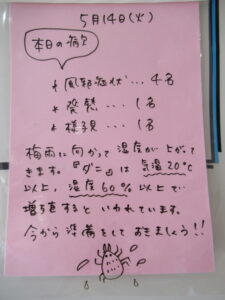 5月14日(火)
本日の病欠
* 風邪症状...4名
* 発熱...1名
* 様子見...1名
梅雨に向かって湿度が上がって
きます。『ダニ』は気温20℃
以上、湿度60%以上で
増殖するといわれています。
今から準備をしておきましょう!!